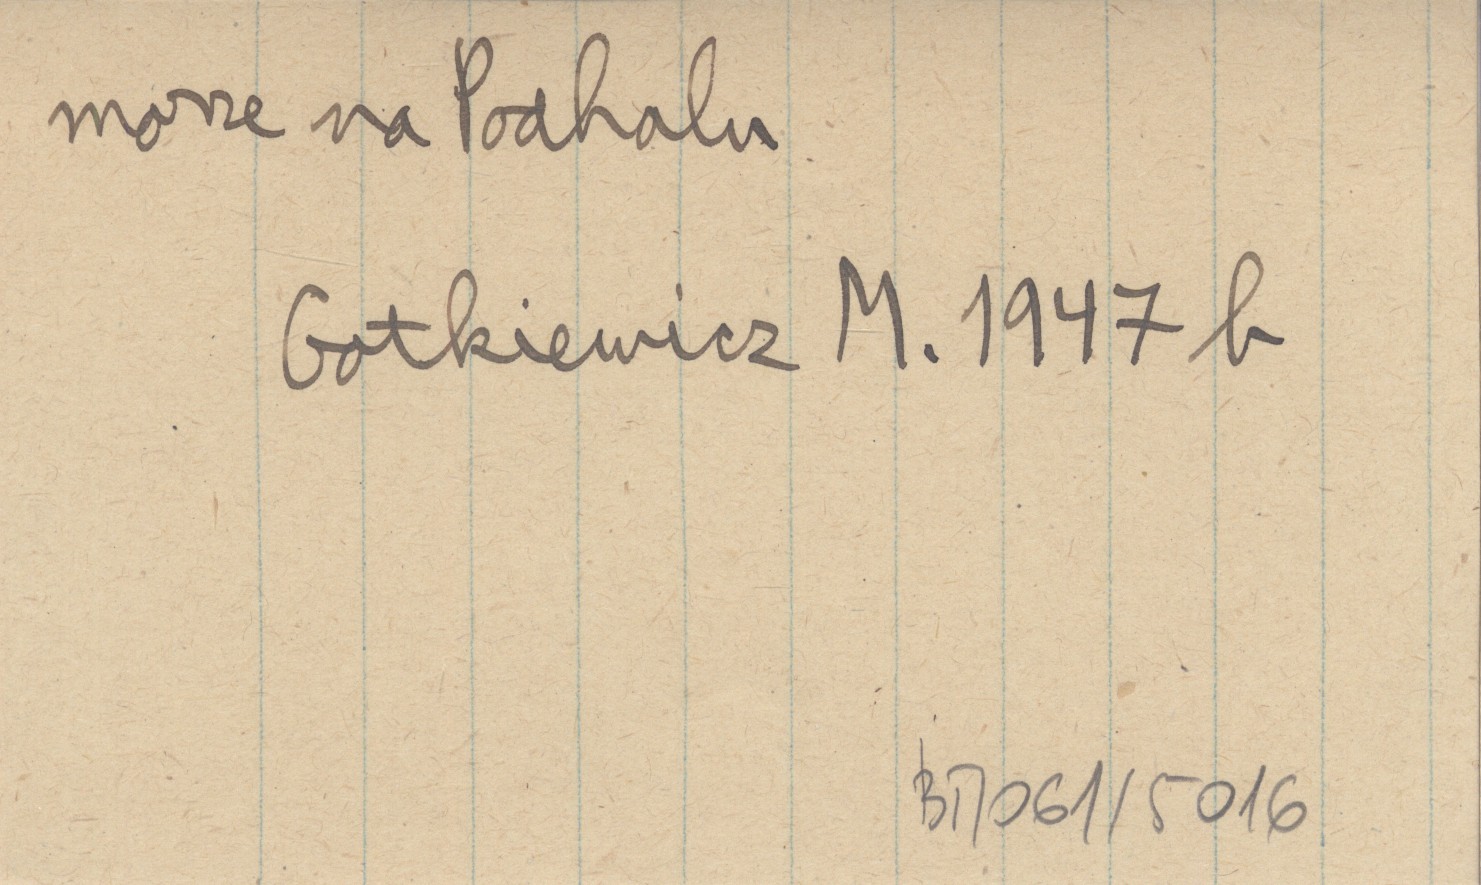 morze na Podhalu
Gotkiewicz M. 1947 b
BП061/5016